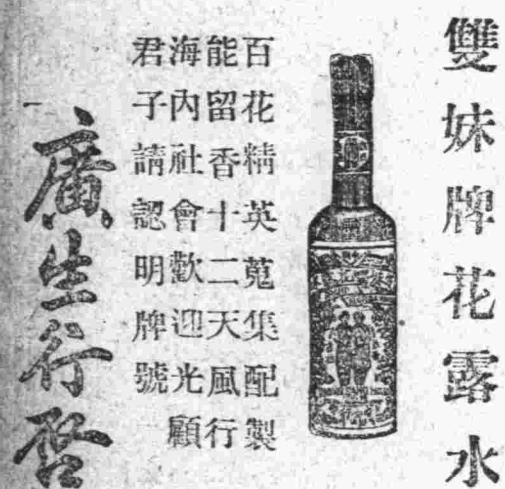 雙妹牌花露水
百花精英蒐集配製
能留香十二天風行
海內社會歡迎光顧
君子請認明牌號
廣生行啓